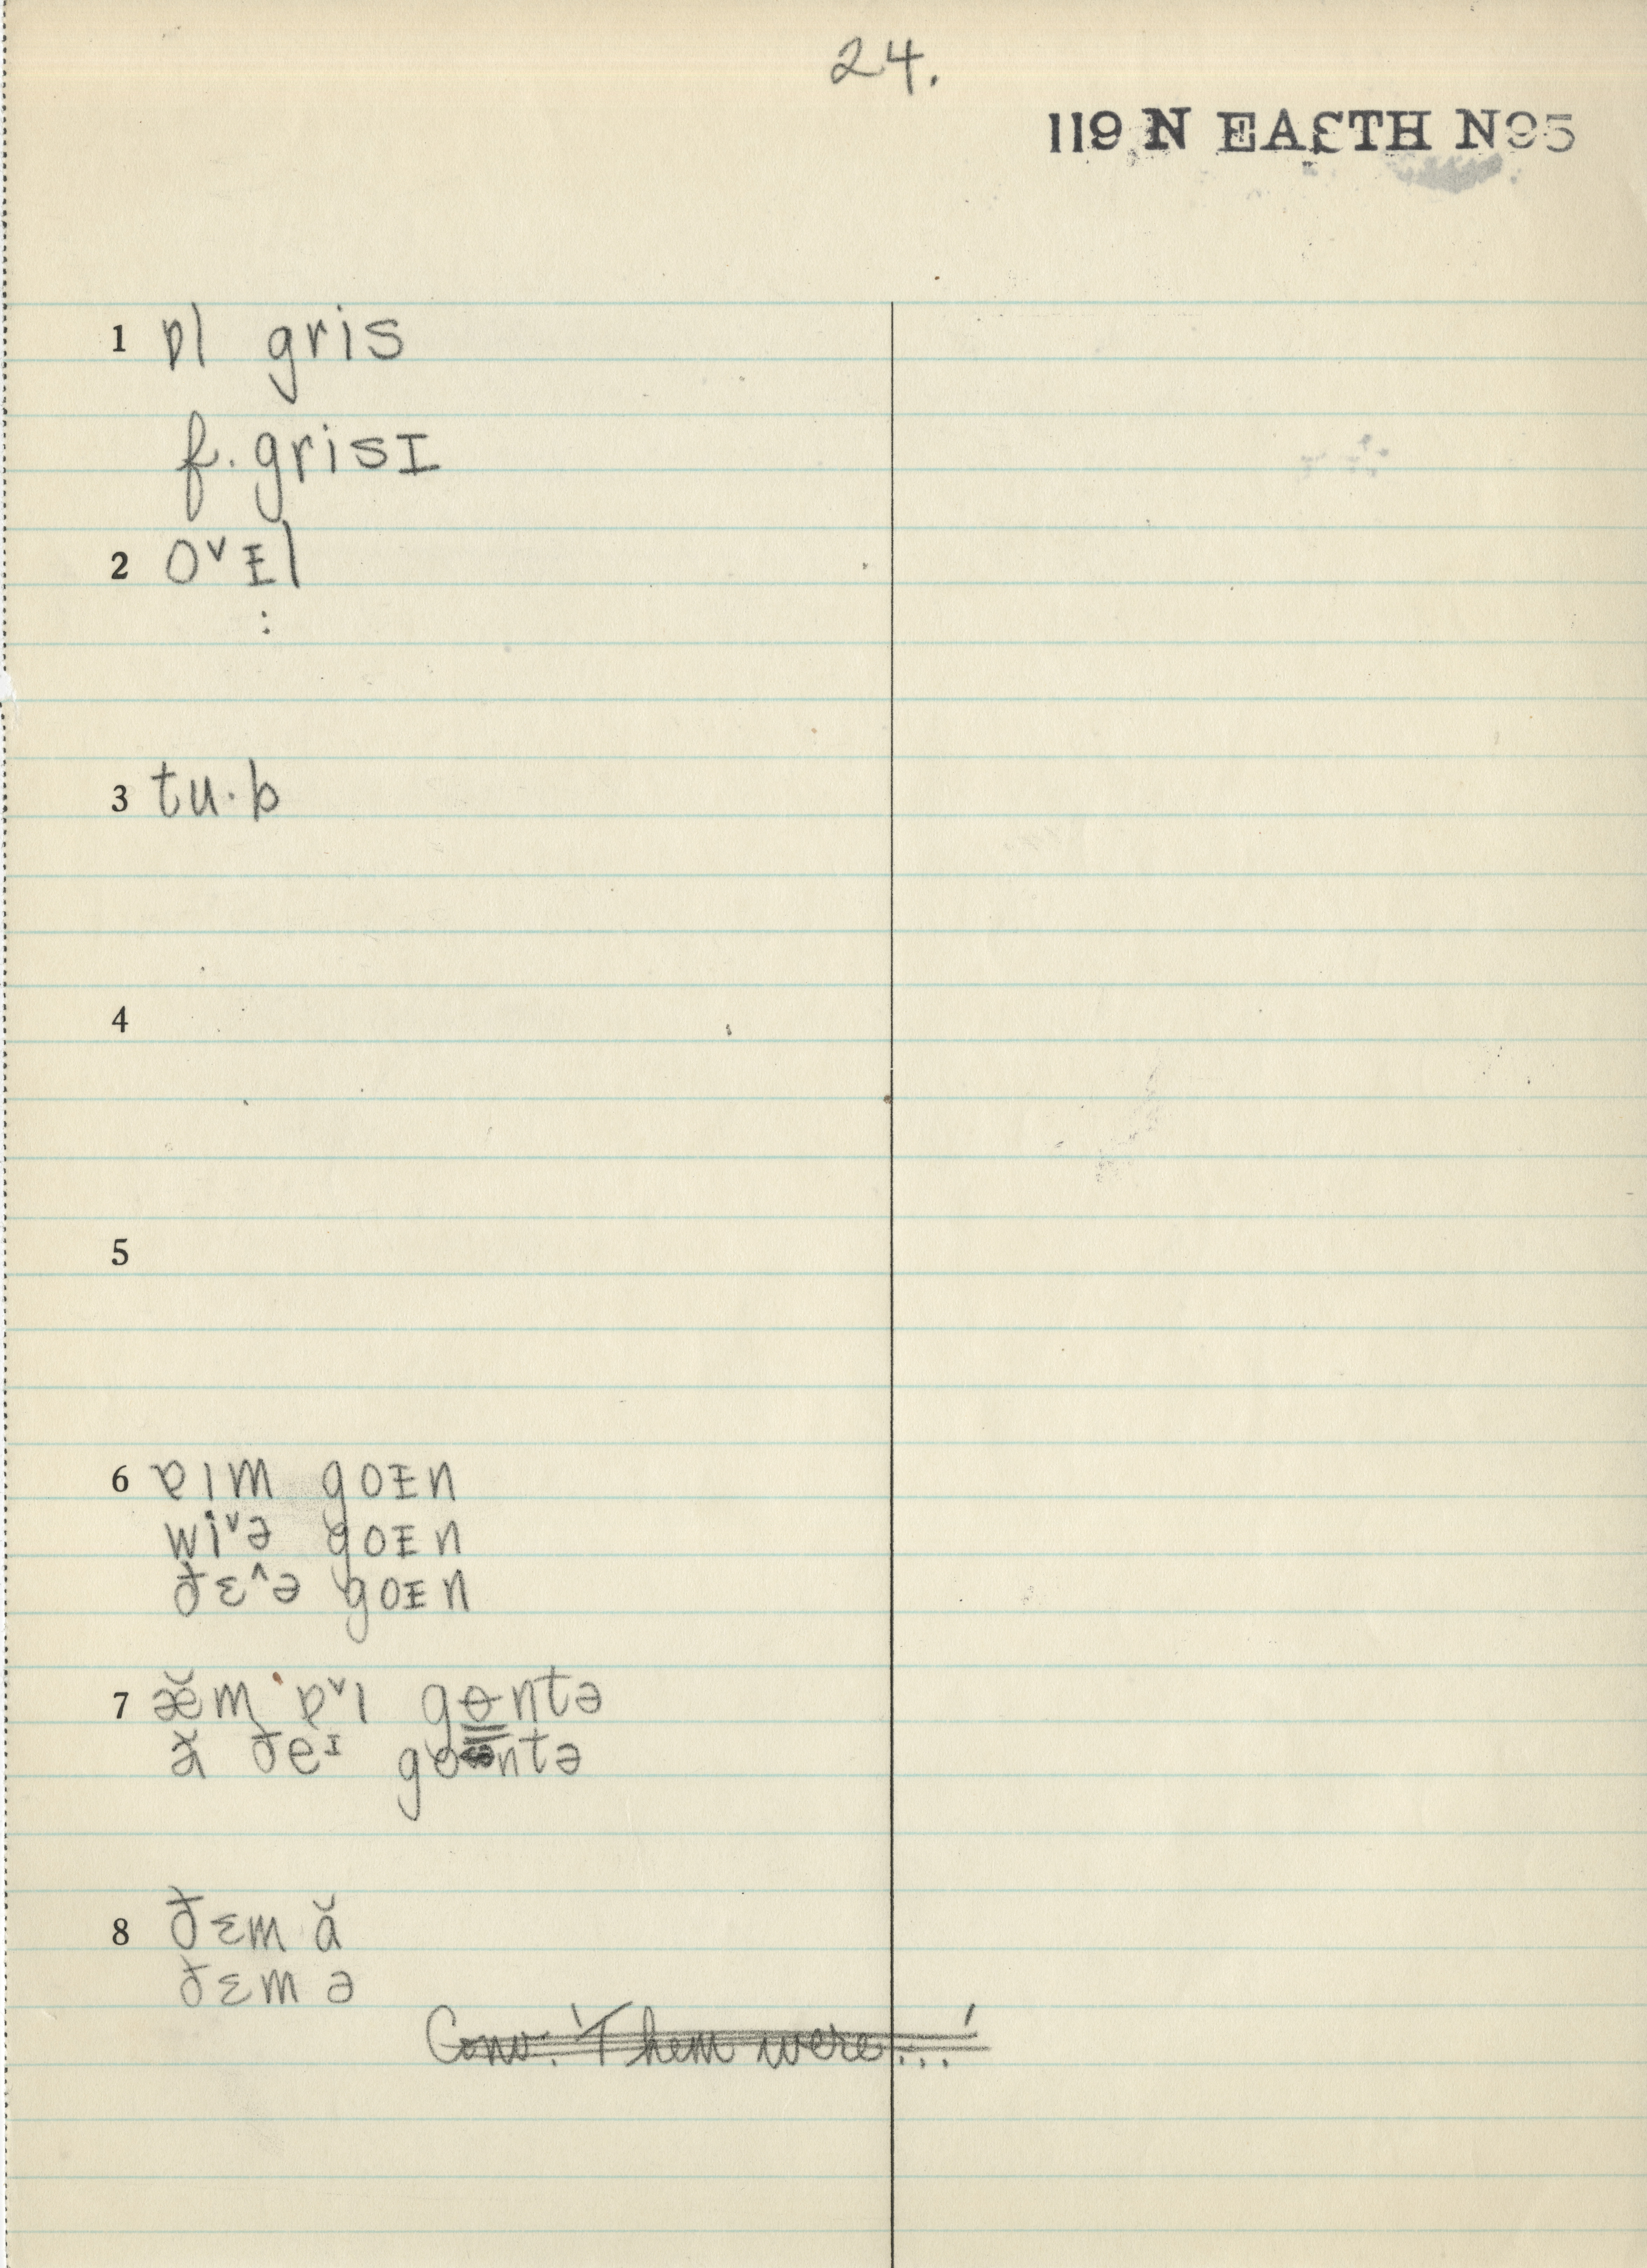 24.
119 N EASTH N95
1 ɒl gris
f. grisɪ
2 oᵛᵻl
:
3 tu·b
4
5
6 ɐɩm goᵻn
wiᵛə goᵻn
ðɛ^ə goᵻn
7 æ̆m ɐᵛɩ gɵntə
ă ðeᶦ gontə
8 ðɛm ă
ðɛm ə
Conv. 'Them were...'